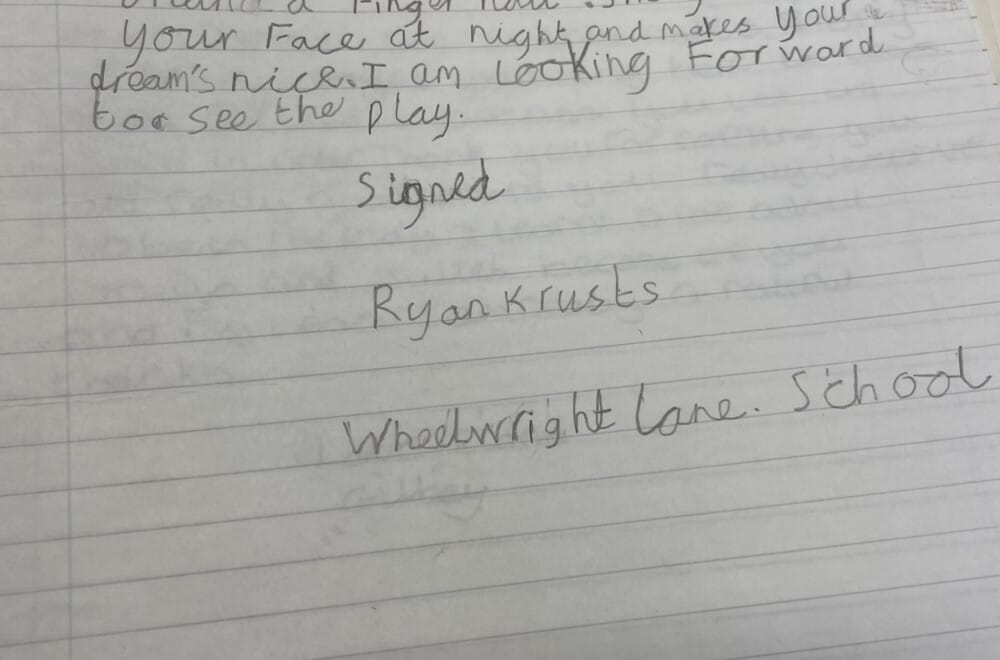 a Finger
your Face at night and makes your
dream's nice. I am looking Forward
too see the play.
signed
Ryan Krusts
Wheelwright Lane. School